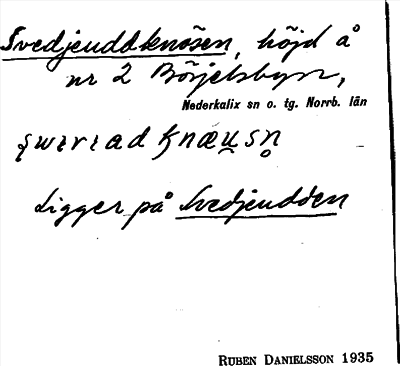 Svedjeuddknösen, höjd å
nr 2 Börjelsbyn,
Nederkalix sn o. tg. Norrb. län
Ligger på Svedjeudden
RUBEN DANIELSSON 1935